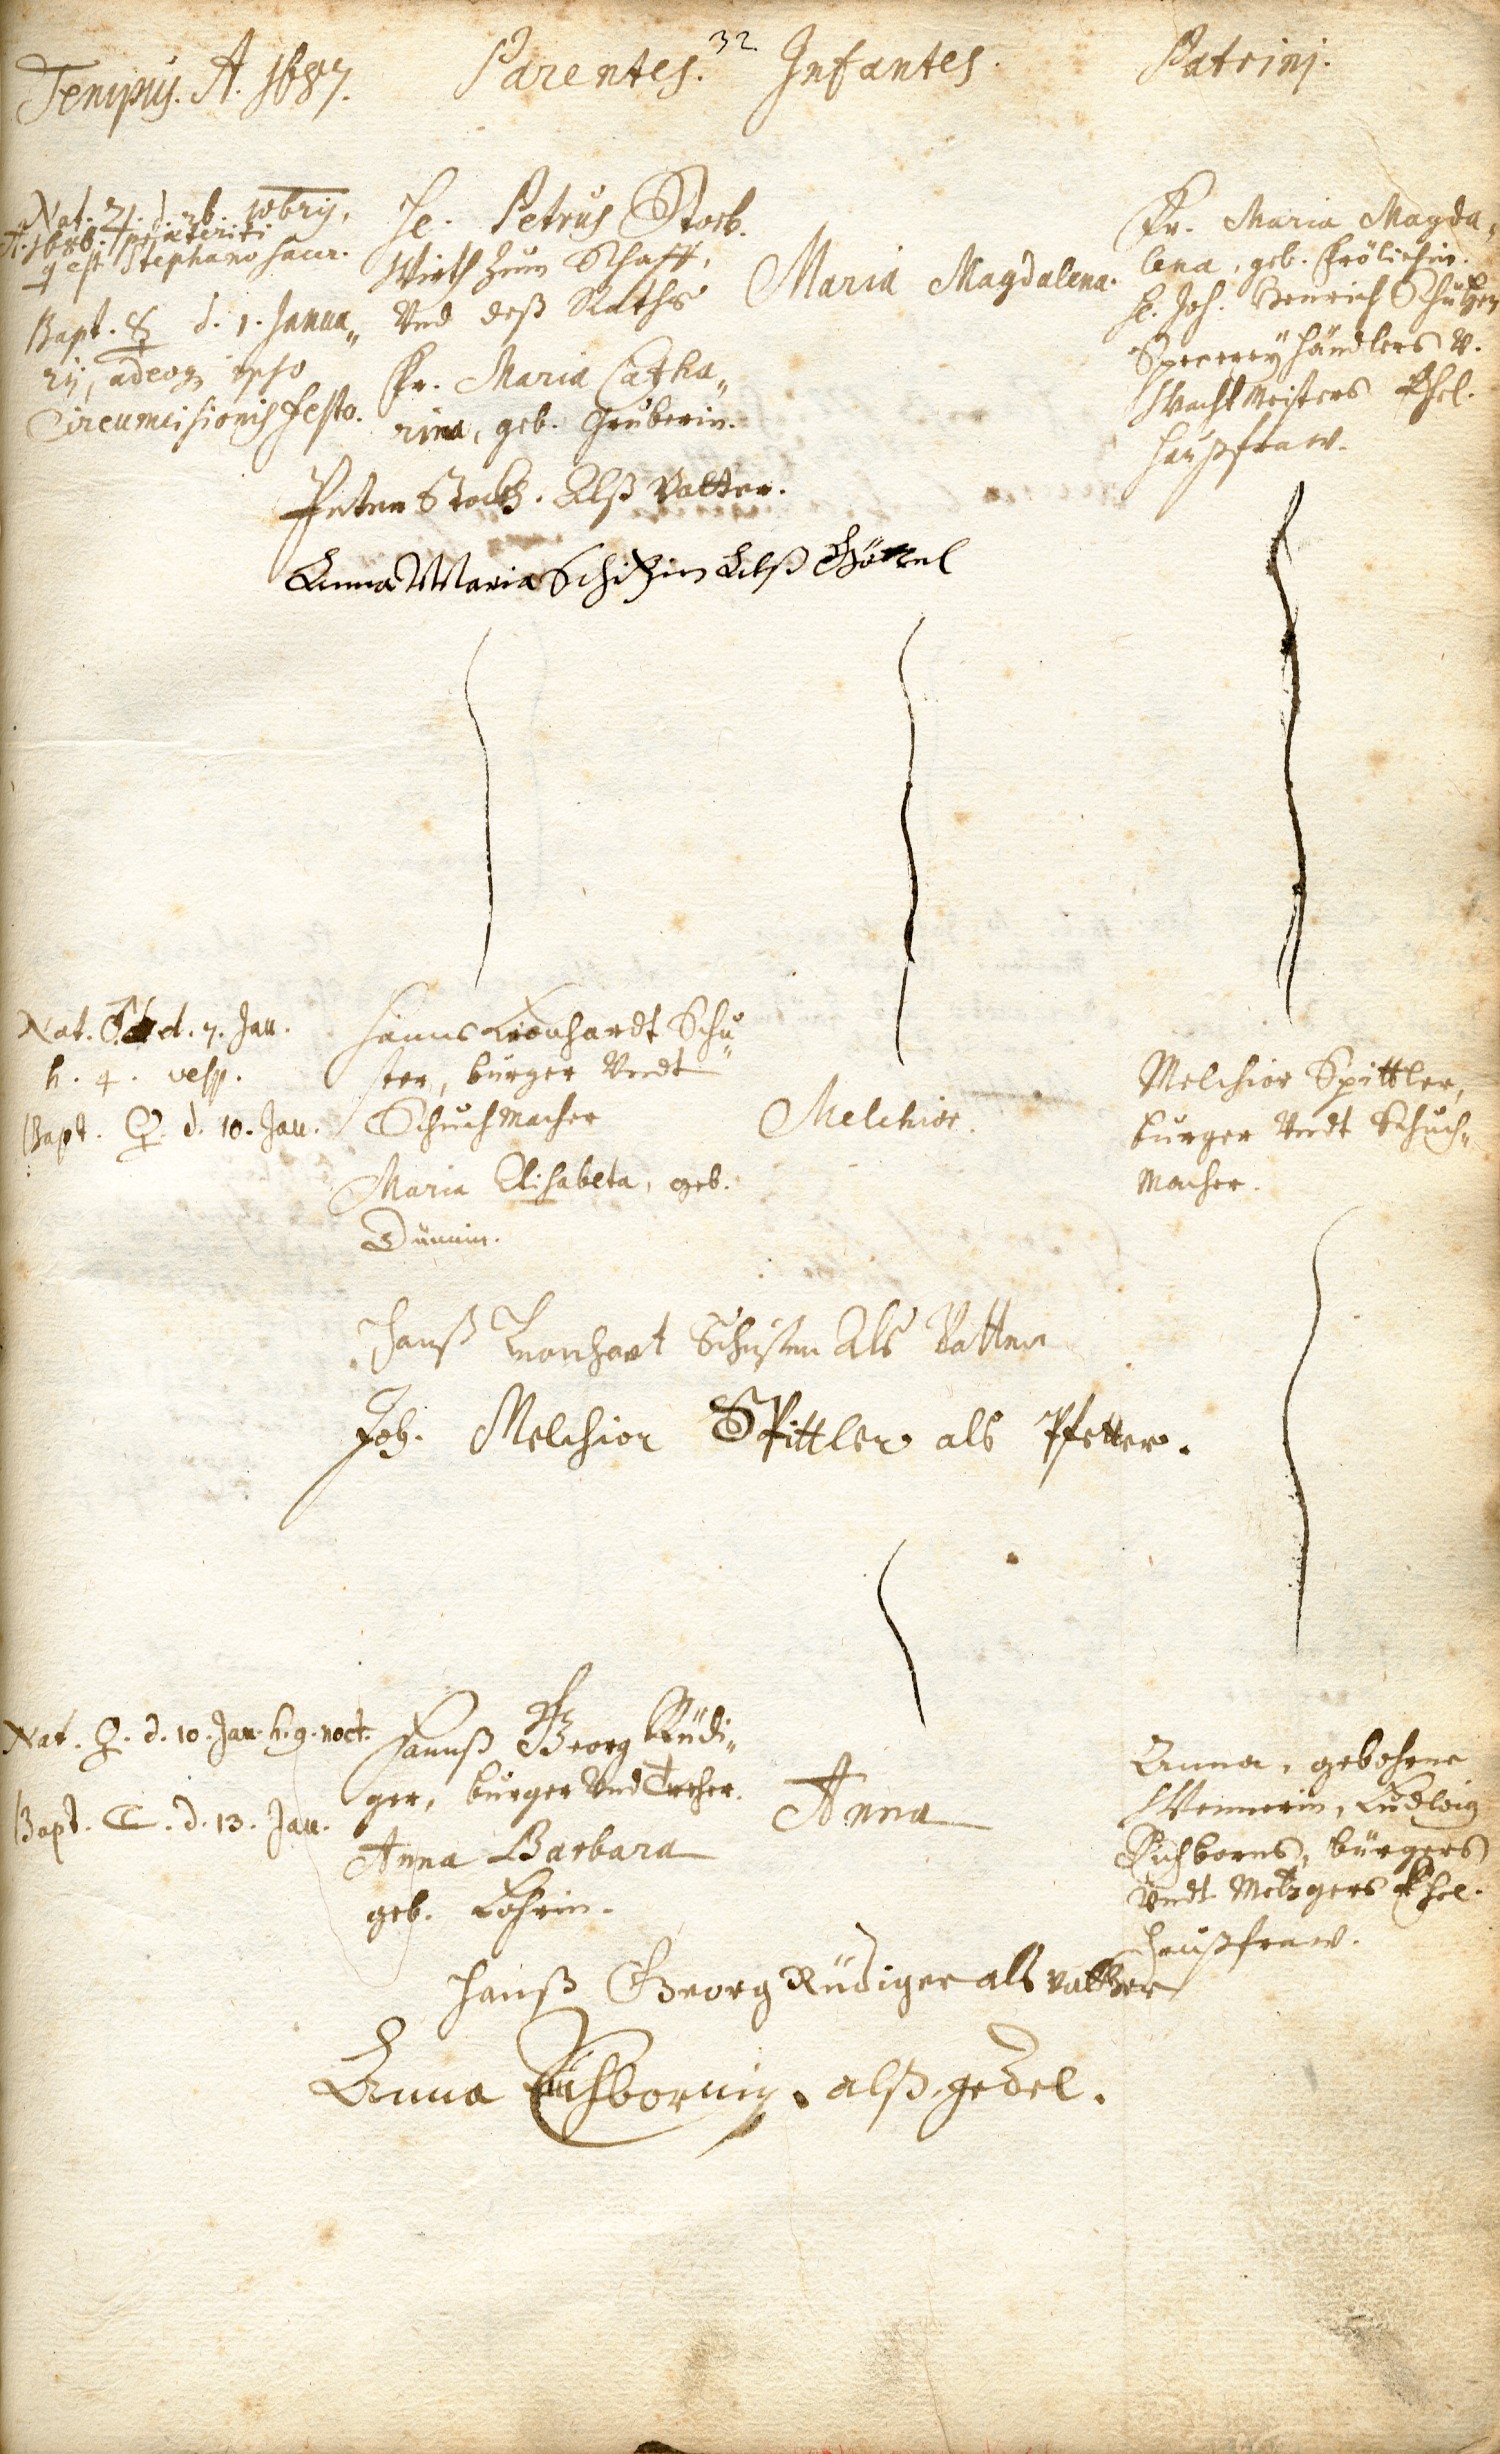 32
Tempus. A. 1687.
Parentes.
Infantes.
Patrini.
Nat. ♃. d. 26. 10bris,
A. 1686. præteriti
q est Stephano sacer.
Bapt. ☿ d. 1. Janua„
rij, adeoq ipso
Circumcisionis festo.
He. Petrus Stork.
Wirth zum Schaff,
Vnd deß Raths
Fr. Maria Catha„
rina, geb. Gruberin.
Maria Magdalena.
Fr. Maria Magda„
lena, geb. Frölichin.
H. Joh. Henrich Schützen
Specereÿ händlers v.
Wachtmeisters Ehel.
haußfraw.
Peter Stork. Alß Vatter.
Anna Maria Schitzin Alß
Nat. d. 7. Jan.
h. 4. vesp.
Bapt. ☿. d. 10. Jan.
Hanns Leonhardt Schu„
ster, burger Vndt
Schuchmacher
Maria Elisabeta, geb.
Melchior.
Melchior Spittler,
burger Vndt Schuch„
macher.
Hanß Leonhart Schuster Als Vatter
Joh. Melchior Spittler als Pfetter.
Nat. ♀. d. 10. Jan. h. 9. noct.
Bapt. ☾. d. 13. Jan.
Hannß Georg Rüdi„
ger, burger Vnd Treher.
Anna Barbara
geb. Lohrin.
Anna
Anna, gebohrne
Wennerin, Ludwig
Eichborns, bürgers
Vndt Metzgers Ehel.
haußfraw.
Hanß Georg Rüdiger als vatter
Anna Eichbornin. alß gedel.